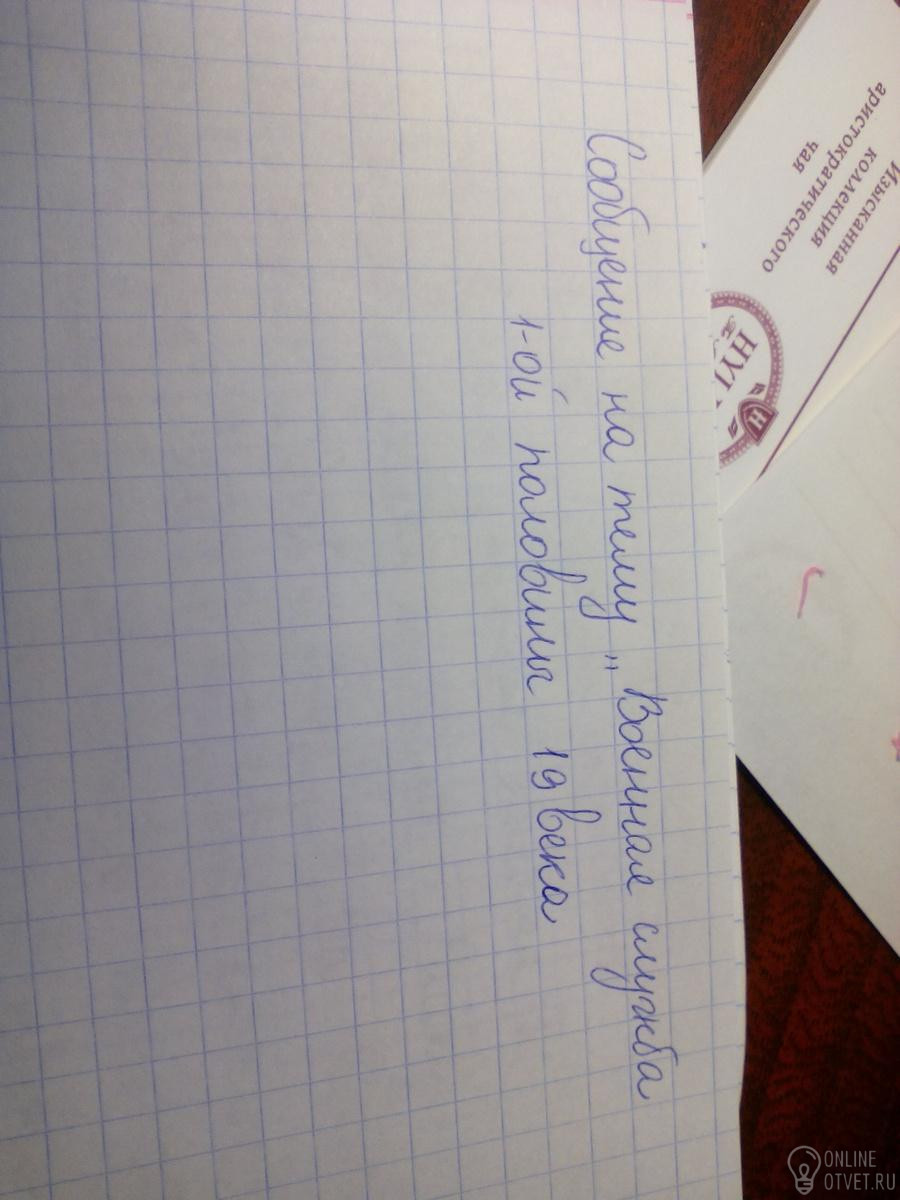 Сообщение на тему „ Военная служба
1-ой половины 19 века
Изысканная
коллекция
аристократического
чая
Н
ONLINE
OTVET.RU